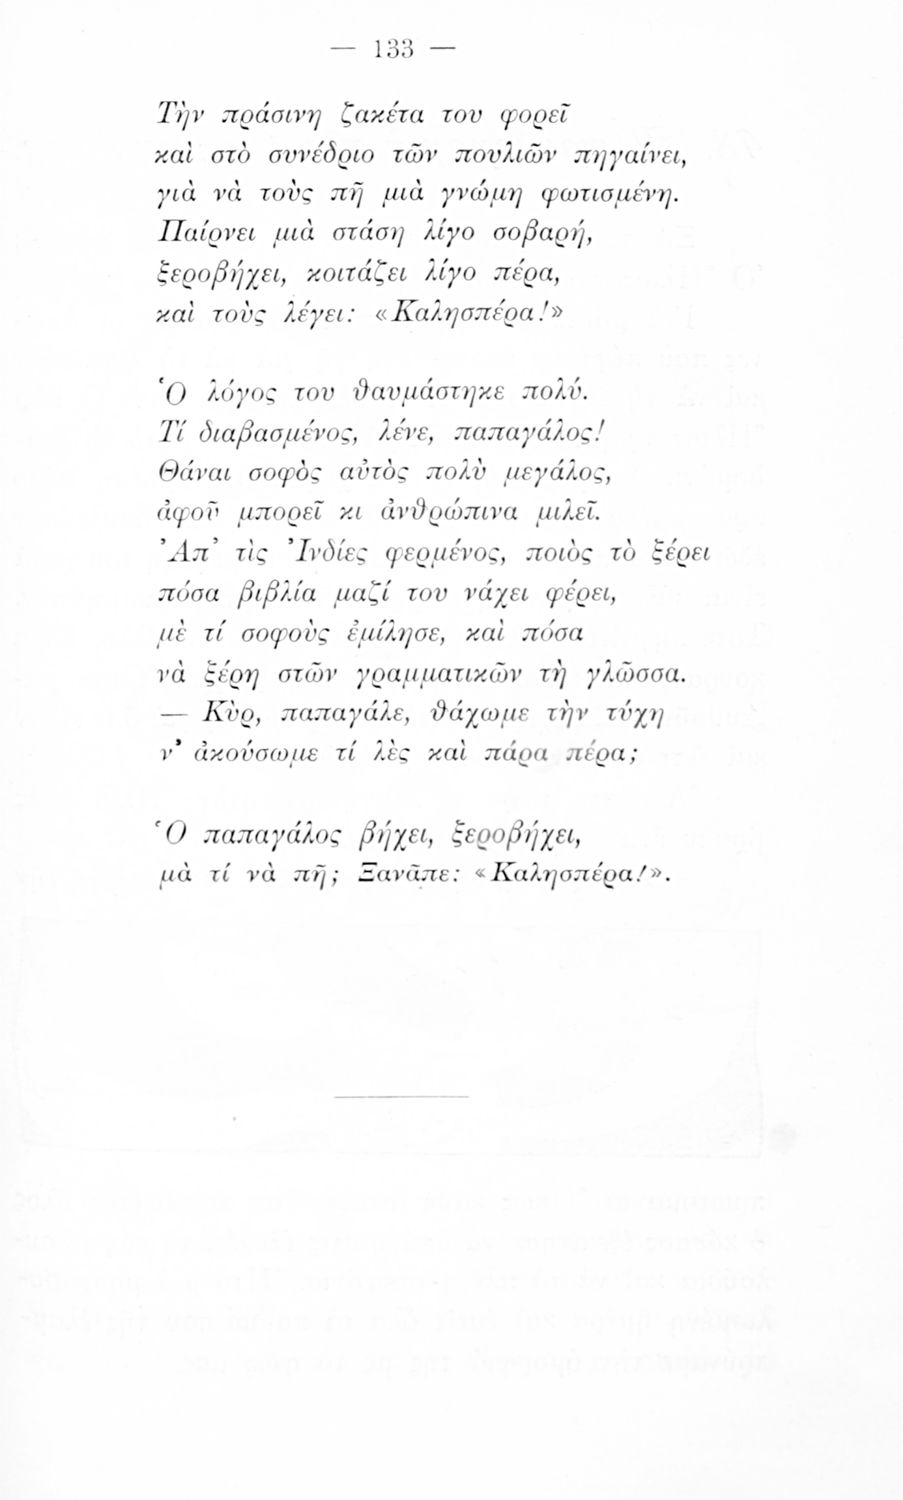 — 133 —
Τὴν πράσινη ζακέτα του φορεῖ
καὶ στὸ συνέδριο τῶν πουλιῶν πηγαίνει,
γιὰ νὰ τοὺς πῇ μιὰ γνώμη φωτισμένη.
Παίρνει μιὰ στάση λίγο σοβαρή,
ξεροβήχει, κοιτάζει λίγο πέρα,
καὶ τοὺς λέγει: «Καλησπέρα!»
Ὁ λόγος του θαυμάστηκε πολύ.
Τί διαβασμένος, λένε, παπαγάλος!
Θάναι σοφὸς αὐτὸς πολὺ μεγάλος,
ἀφοῦ μπορεῖ κι ἀνθρώπινα μιλεῖ.
Ἀπ’ τὶς Ἰνδίες φερμένος, ποιὸς τὸ ξέρει
πόσα βιβλία μαζί του νάχει φέρει,
μὲ τί σοφοὺς ἐμίλησε, καὶ πόσα
νὰ ξέρῃ στῶν γραμματικῶν τὴ γλῶσσα.
— Κὺρ, παπαγάλε, θάχωμε τὴν τύχη
ν’ ἀκούσωμε τί λὲς καὶ πάρα πέρα;
Ὁ παπαγάλος βήχει, ξεροβήχει,
μὰ τί νὰ πῇ; Ξανᾶπε: «Καλησπέρα!».